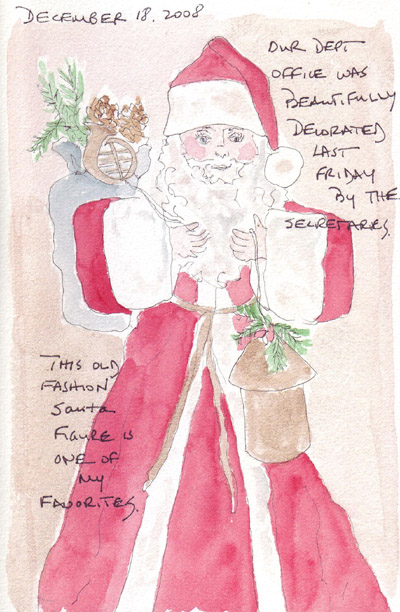 DECEMBER 18, 2008
OUR DEPT
OFFICE WAS
BEAUTIFULLY
DECORATED
LAST
FRIDAY
BY THE
SECRETARIES.
THIS OLD
FASHION
Santa
FIGURE IS
ONE OF
MY
FAVORITES.